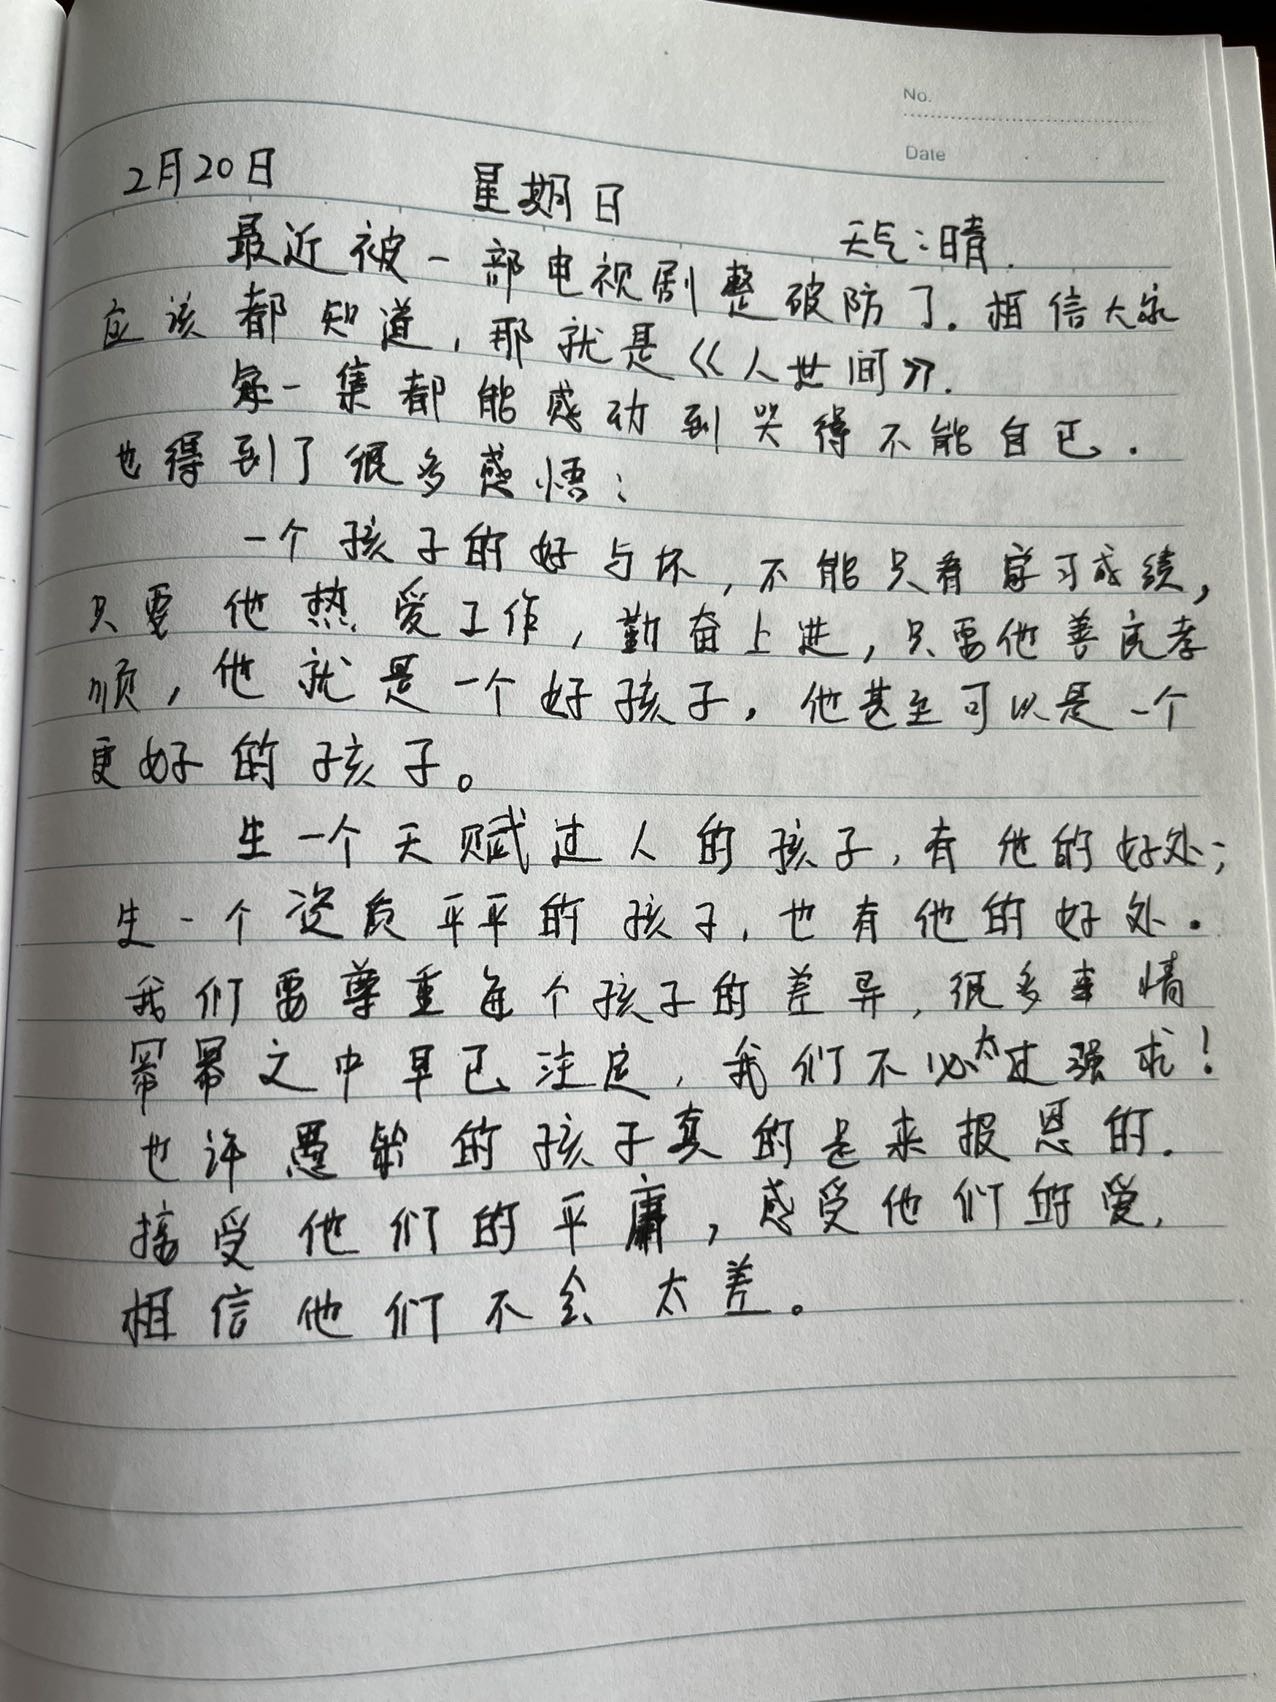 No.
Date
2月20日 星期日 天气:晴.
最近被一部电视剧整破防了.相信大家
应该都知道,那就是《人世间》.
每一集都能感动到哭得不能自已.
也得到了很多感悟:
一个孩子的好与坏,不能只看学习成绩,
只要他热爱工作,勤奋上进,只要他善良孝
顺,他就是一个好孩子,他甚至可以是一个
更好的孩子。
生一个天赋过人的孩子,有他的好处;
生一个资质平平的孩子,也有他的好处.
我们要尊重每个孩子的差异,很多事情
幂幂之中早已注定,我们不必太过强求!
也许愚钝的孩子真的是来报恩的.
接受他们的平庸,感受他们的爱,
相信他们不会太差。